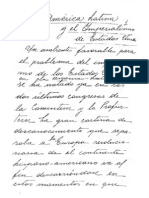 América Latina
y el Imperialismo
de Estados Unidos
Un ambiente favorable para
el problema del impe
mo de los Estados
se ha notado ya en los
dos últimos congresos
la Comintern y la Profin
tern. La gran cortina de
desconocimiento que sepa
raba a Europa revolucio
naria de el continente
hispano americano va al
fin descorriéndose, en
estos momentos en que